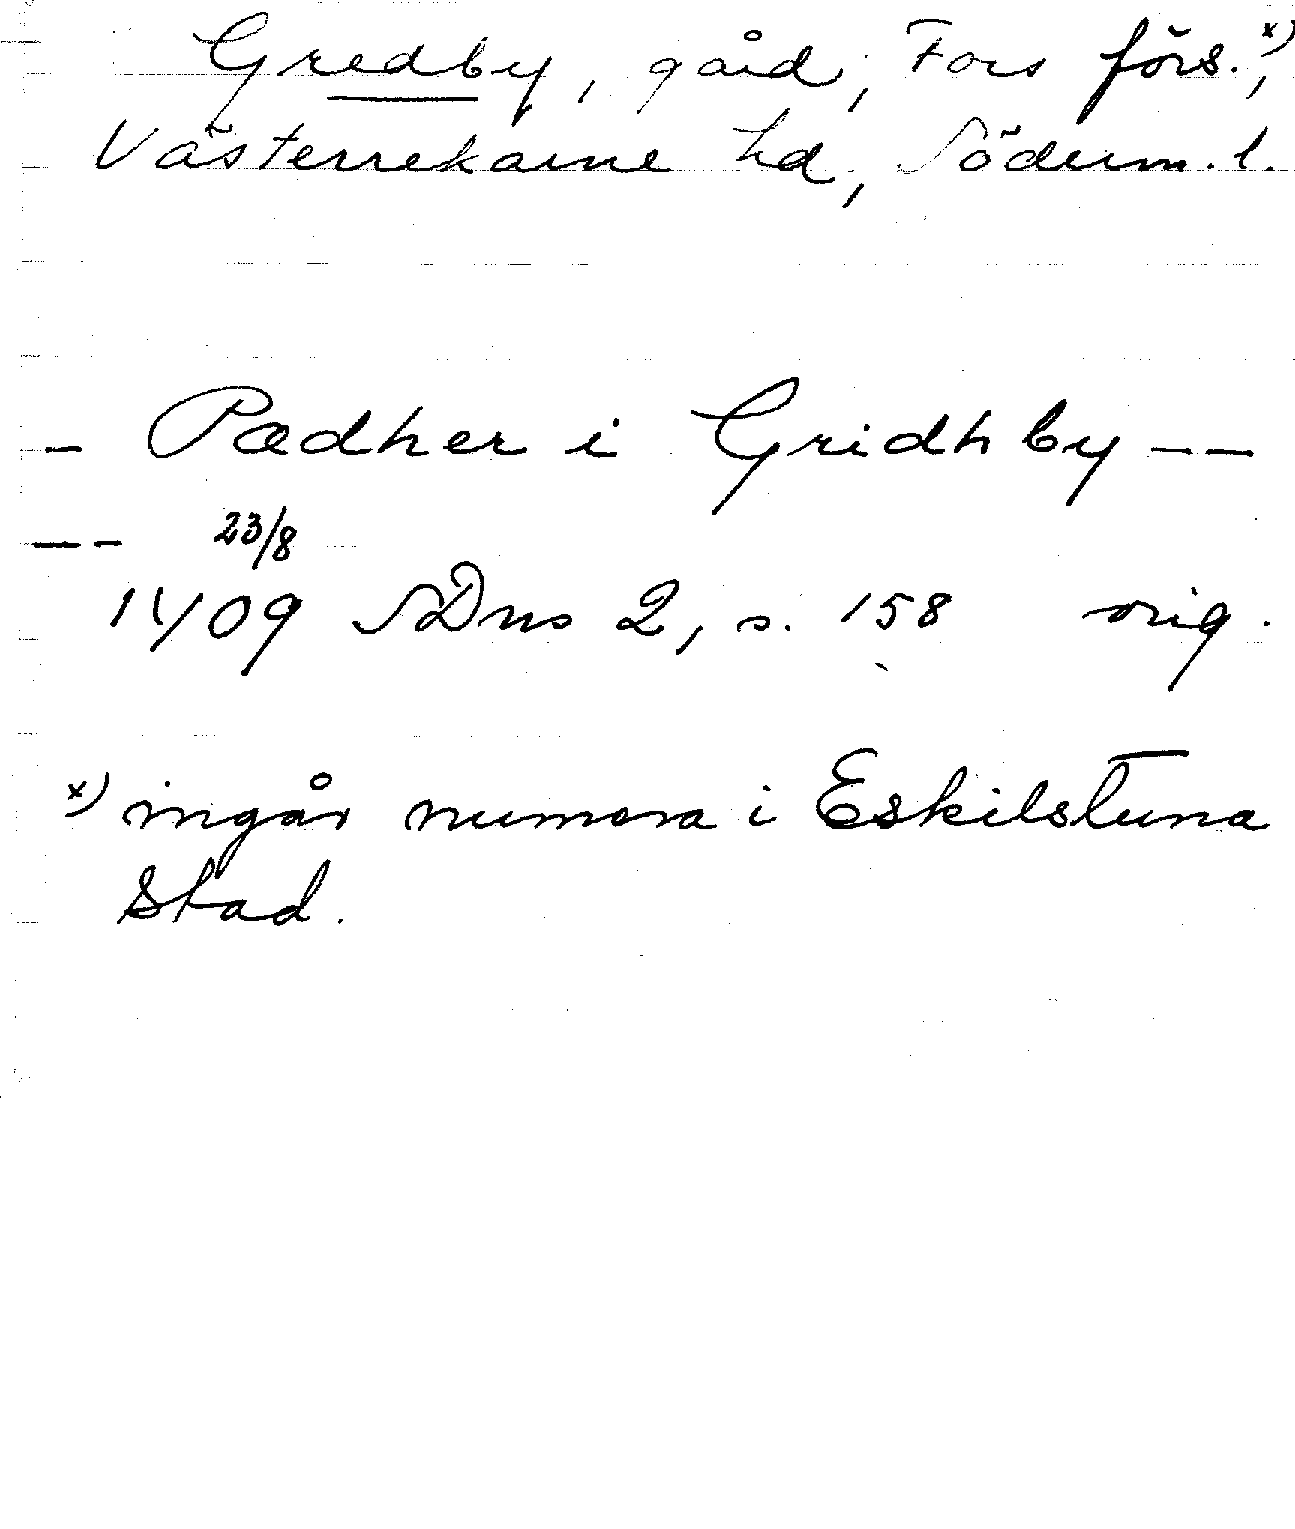 Gredby, gård, Fors förs.x),
Västerrekarne hd, Söderm. l.
- Pædher i Gridhby --
-- 23/8
1409 SDns 2, s. 158 orig.
x) ingår numera i Eskilstuna
stad.